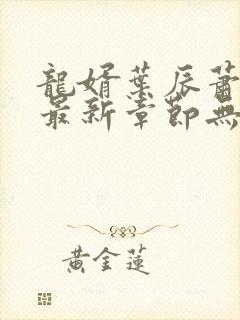 龍婿葉辰蕭
最新章節無
黃金蓮